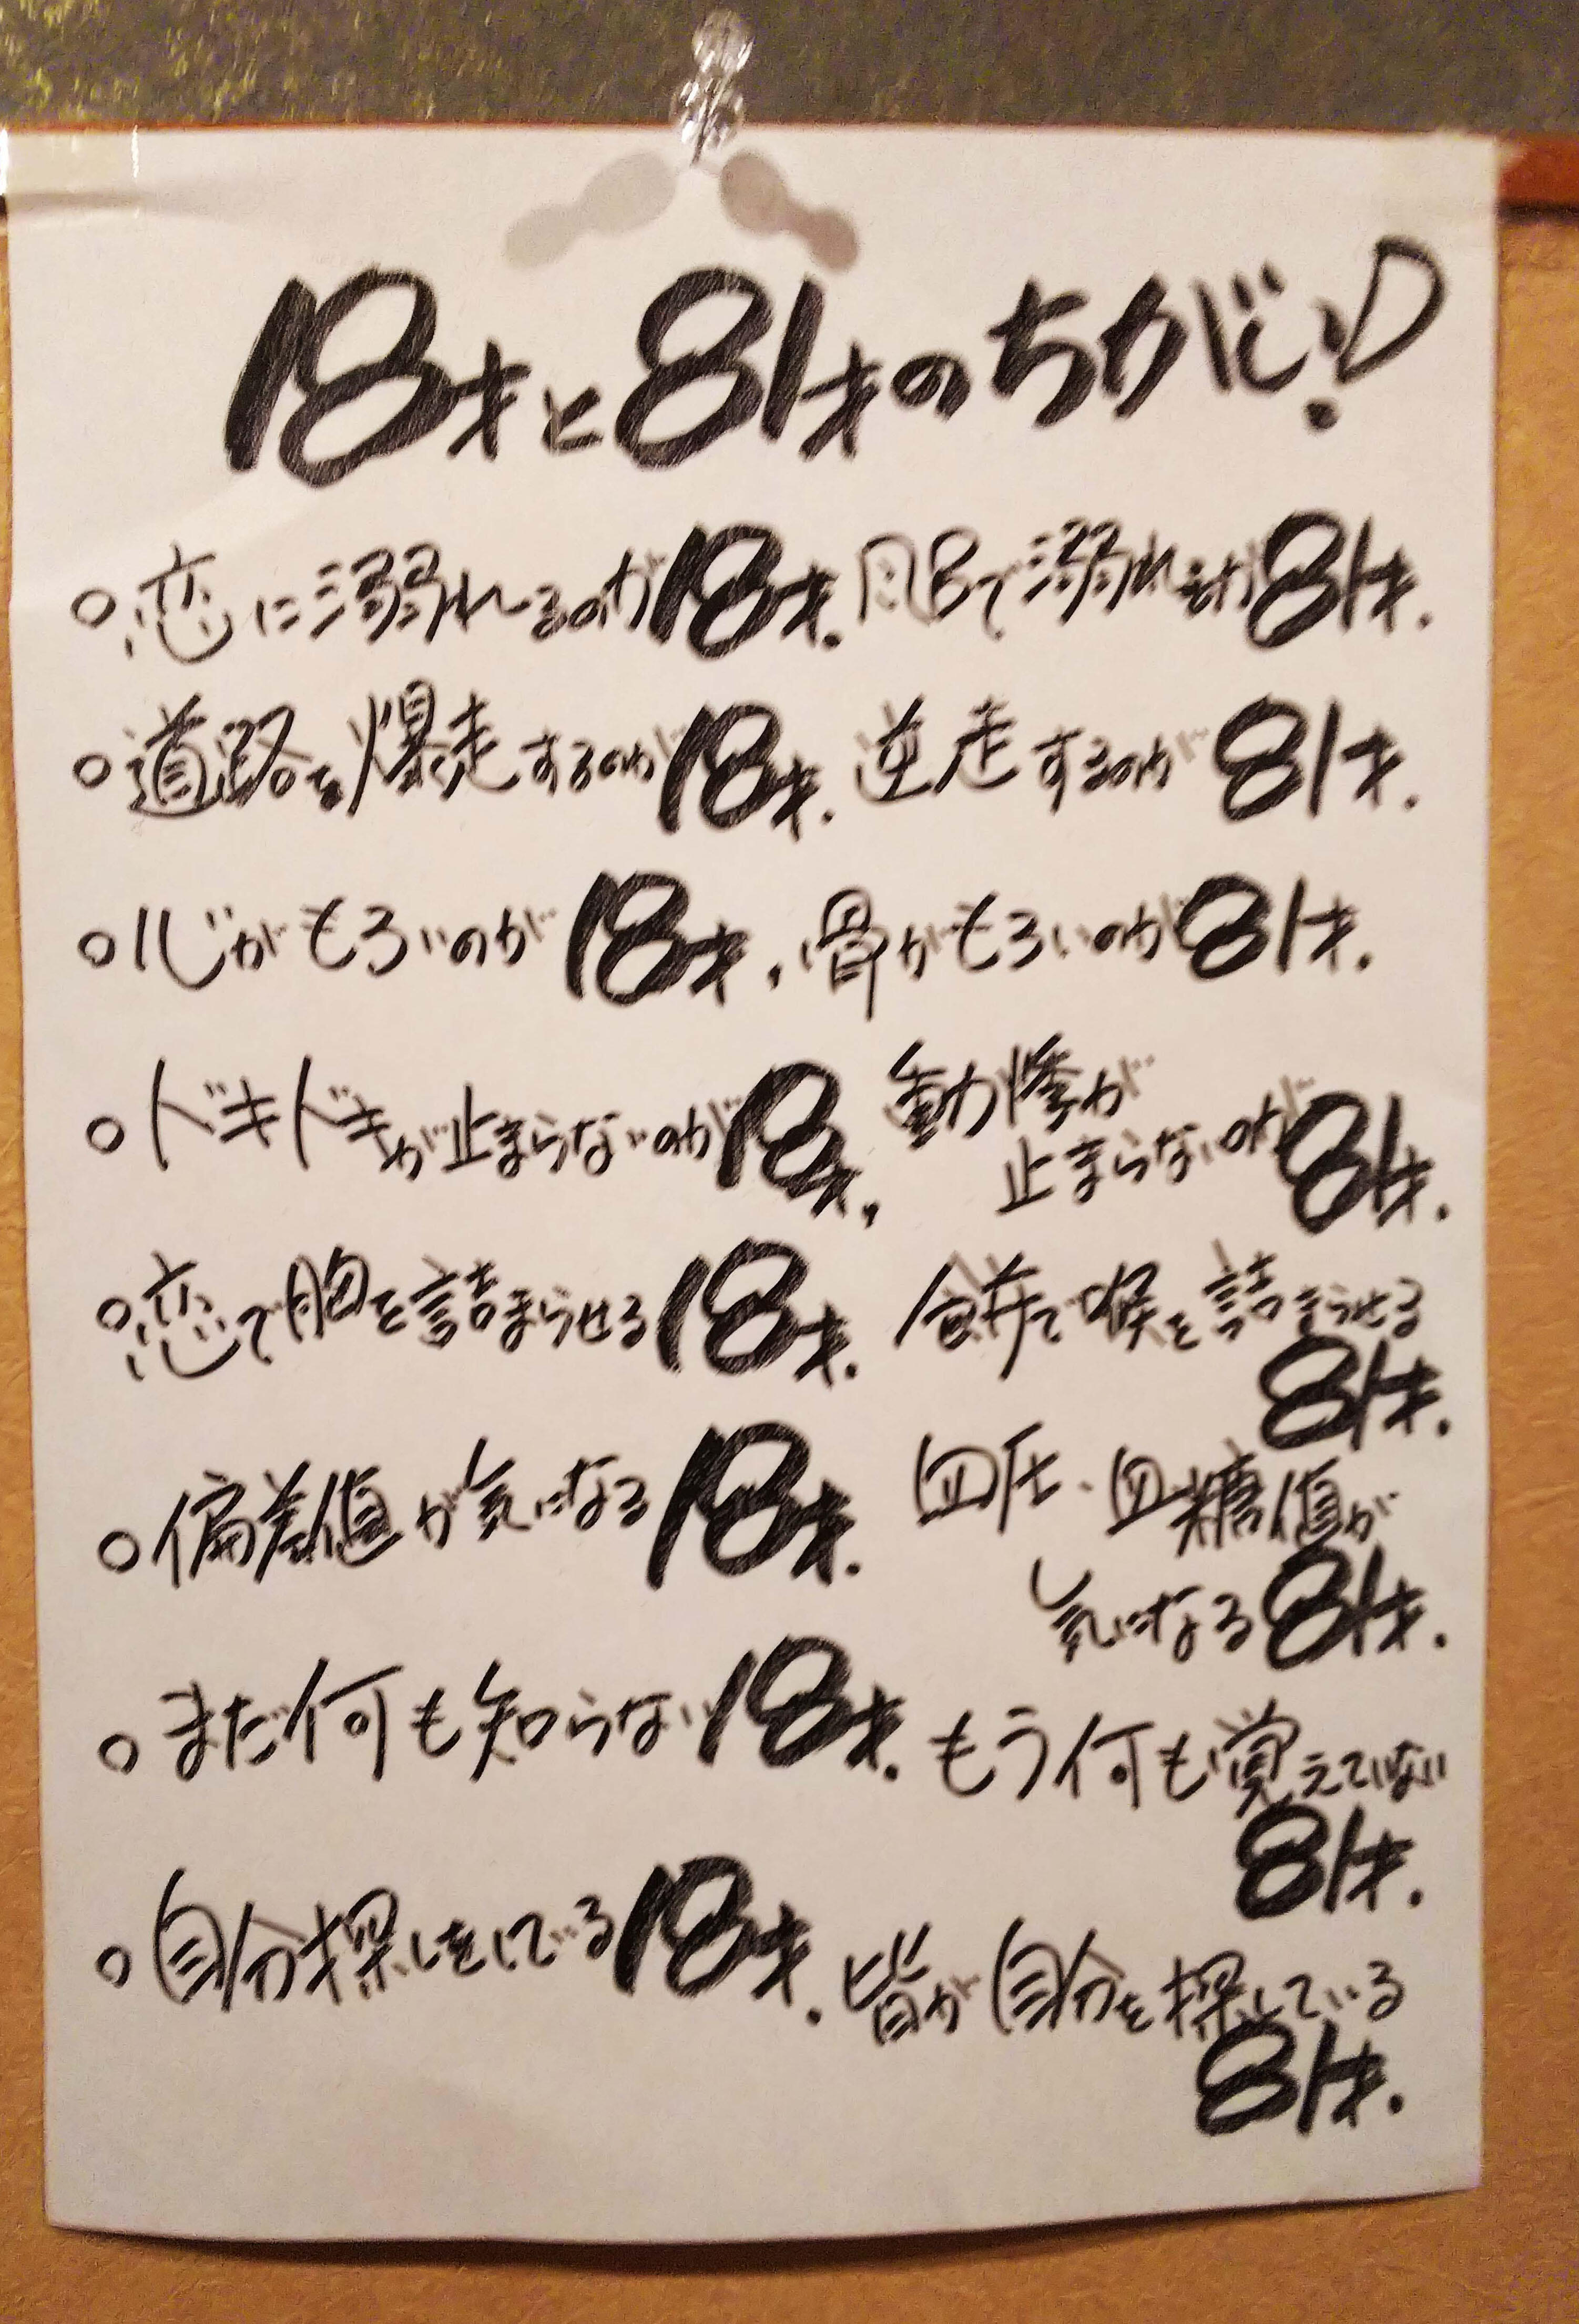 18才と81才のちがい!
○恋に溺れるのが18才.風呂で溺れるのが81才.
○道路を爆走するのが18才.逆走するのが81才.
○心がもろいのが18才,骨がもろいのが81才.
○ドキドキが止まらないのが18才,動悸が
止まらないのが81才.
○恋で胸を詰まらせる18才.餅で喉を詰まらせる
81才.
○偏差値が気になる18才.血圧・血糖値が
気になる81才.
○まだ何も知らない18才.もう何も覚えていない
81才.
○自分探しをしている18才.皆が自分を探している
81才.